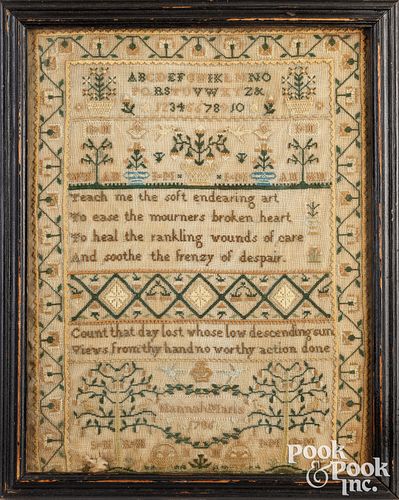 ABCDEFGHIKLMNO
Teach me the soft endearing art
To ease the mourners broken heart
To heal the rankling wounds of care
And soothe the frenzy of despair.
Count that day lost whose low descending sun
Views from thy hand no worthy action done
Hannah Maris
POOK
& POOK
INC.